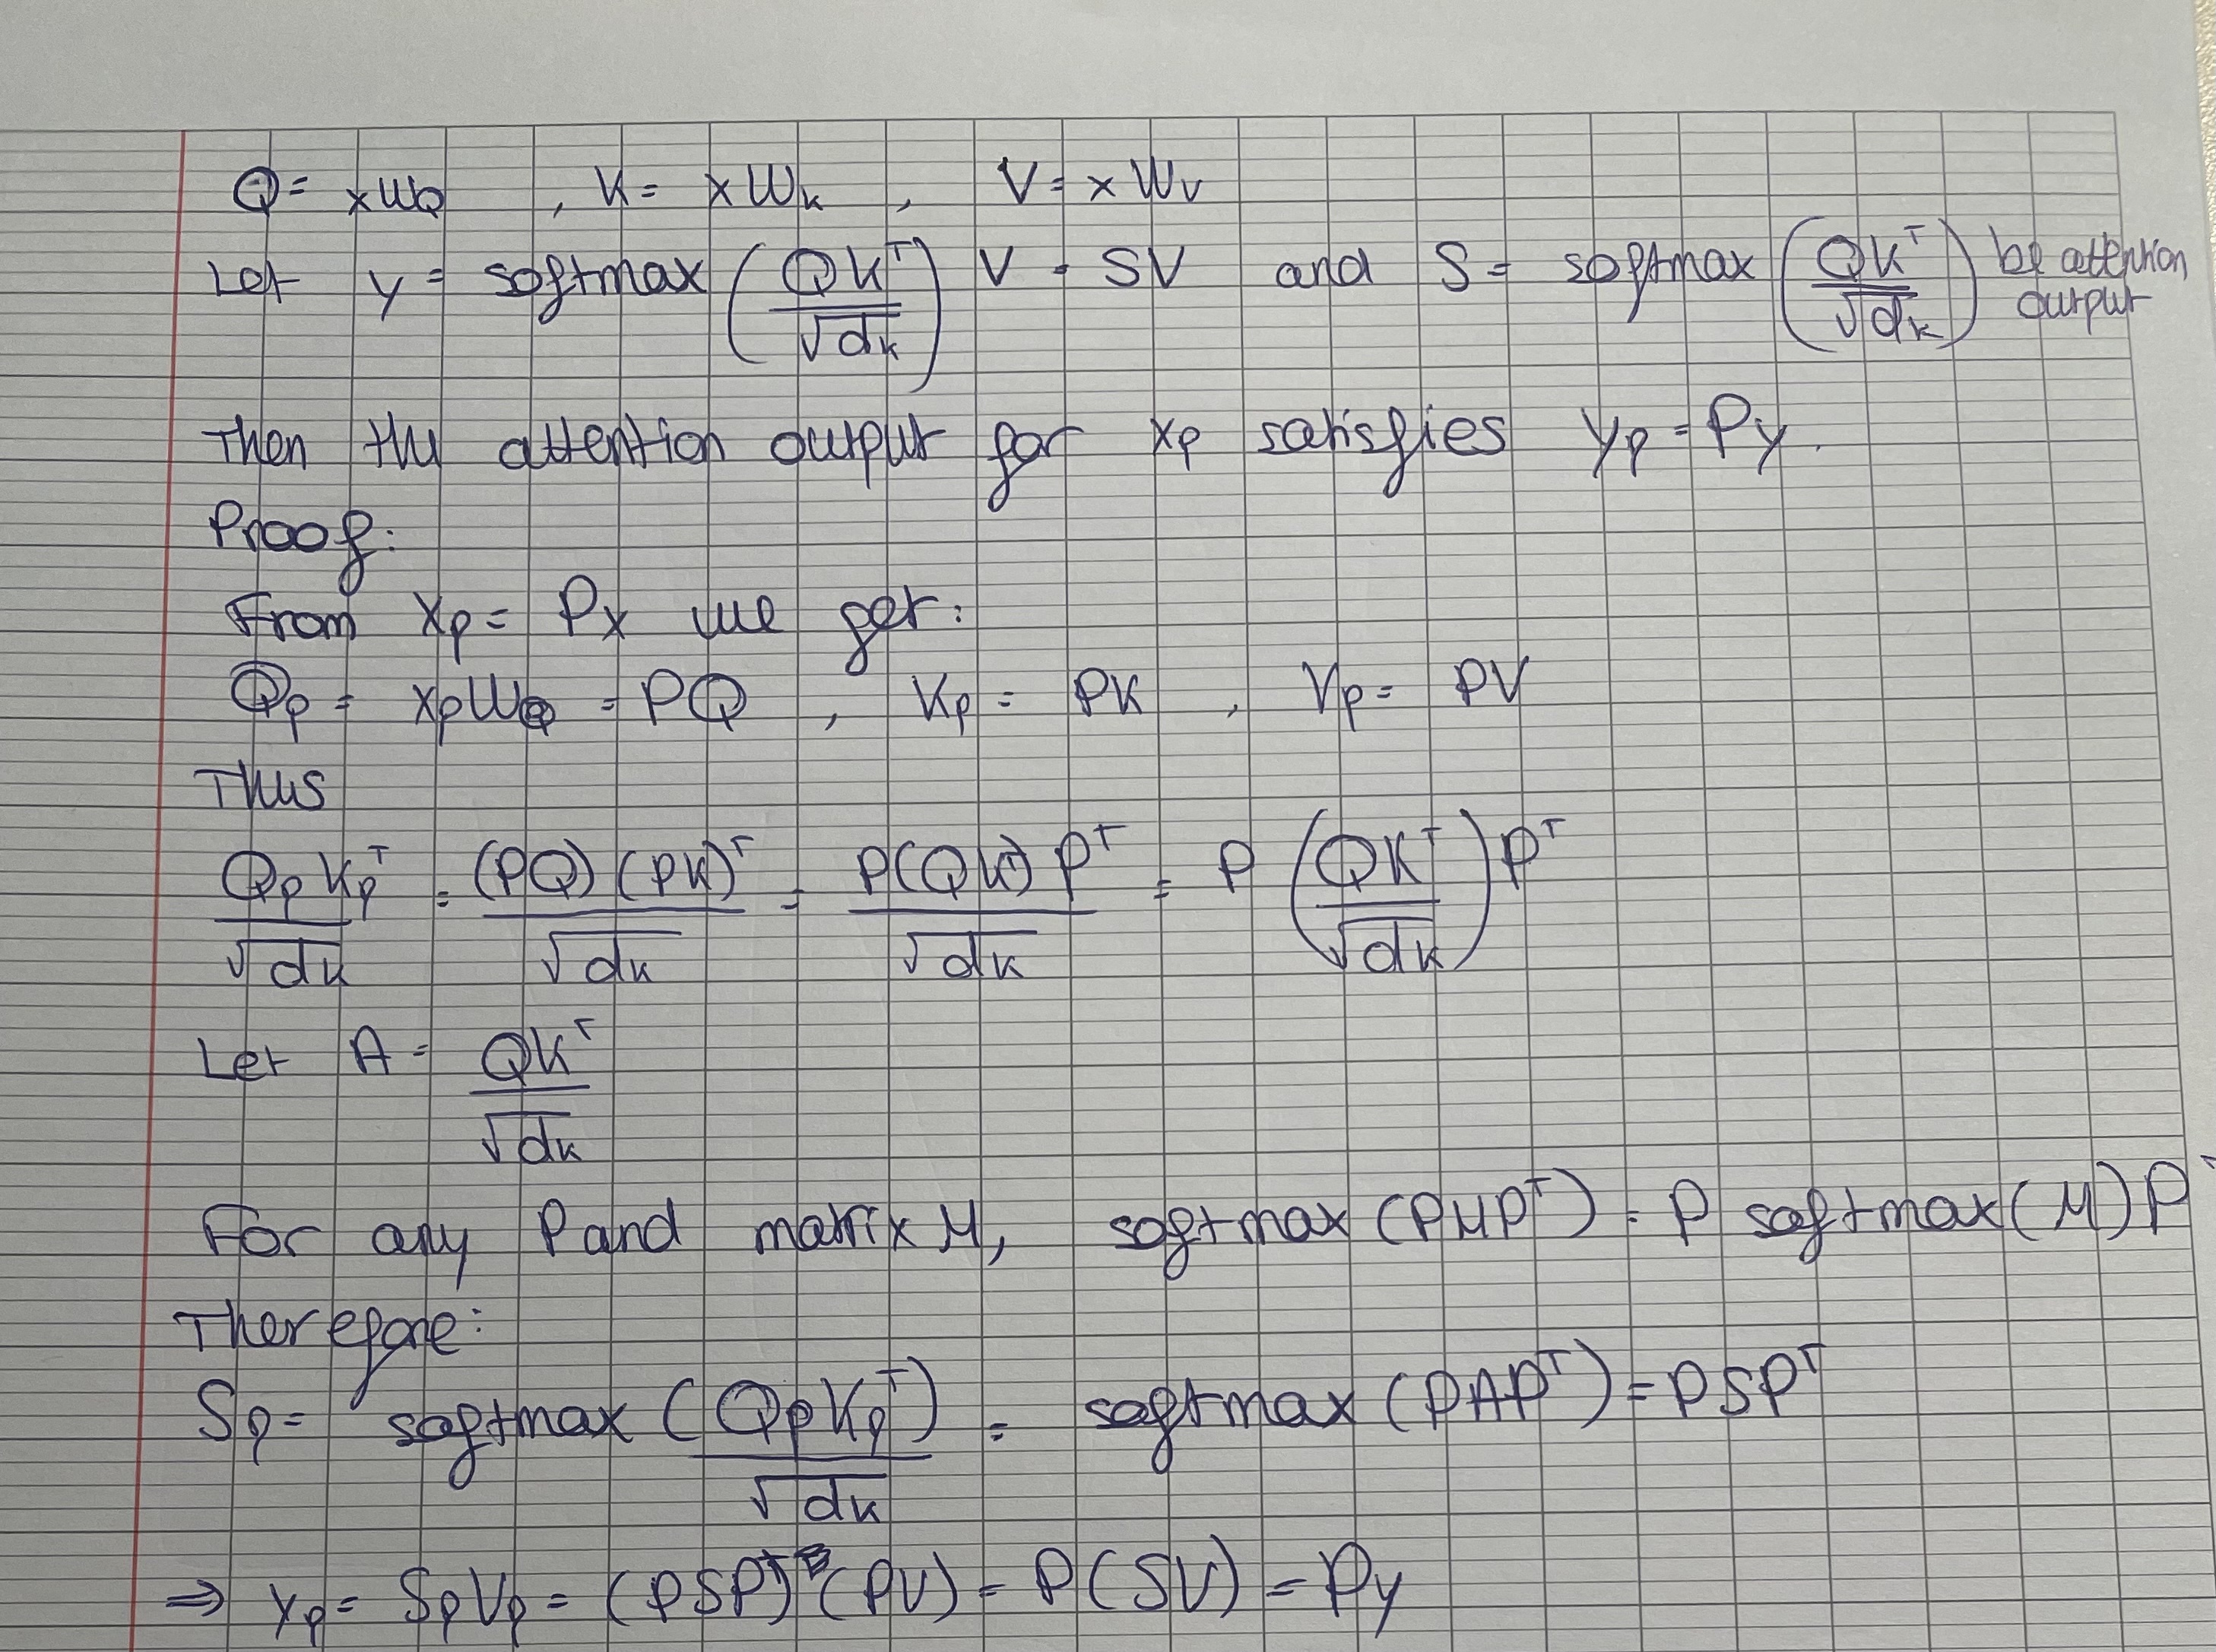 Q = xW_Q , K = xW_k , V = xW_v
Let y = softmax(QK^T/√d_k) V = SV and S = softmax(QK^T/√d_k) be attention output
Then the attention output for x_p satisfies y_p = Py.
Proof:
From x_p = Px we get:
Q_p = x_pW_Q = PQ , K_p = PK , V_p = PV
Thus
Q_pK_p^T/√d_k = (PQ)(PK)^T/√d_k = P(QK)P^T/√d_k = P(QK^T/√d_k)P^T
Let A = QK^T/√d_k
For any P and matrix M, softmax(PMP^T) = P softmax(M)P^T
Therefore:
S_p = softmax(Q_pK_p^T/√d_k) = softmax(PAP^T) = PSP^T
⇒ y_p = S_pV_p = (PSP^T)(PV) = P(SV) = Py